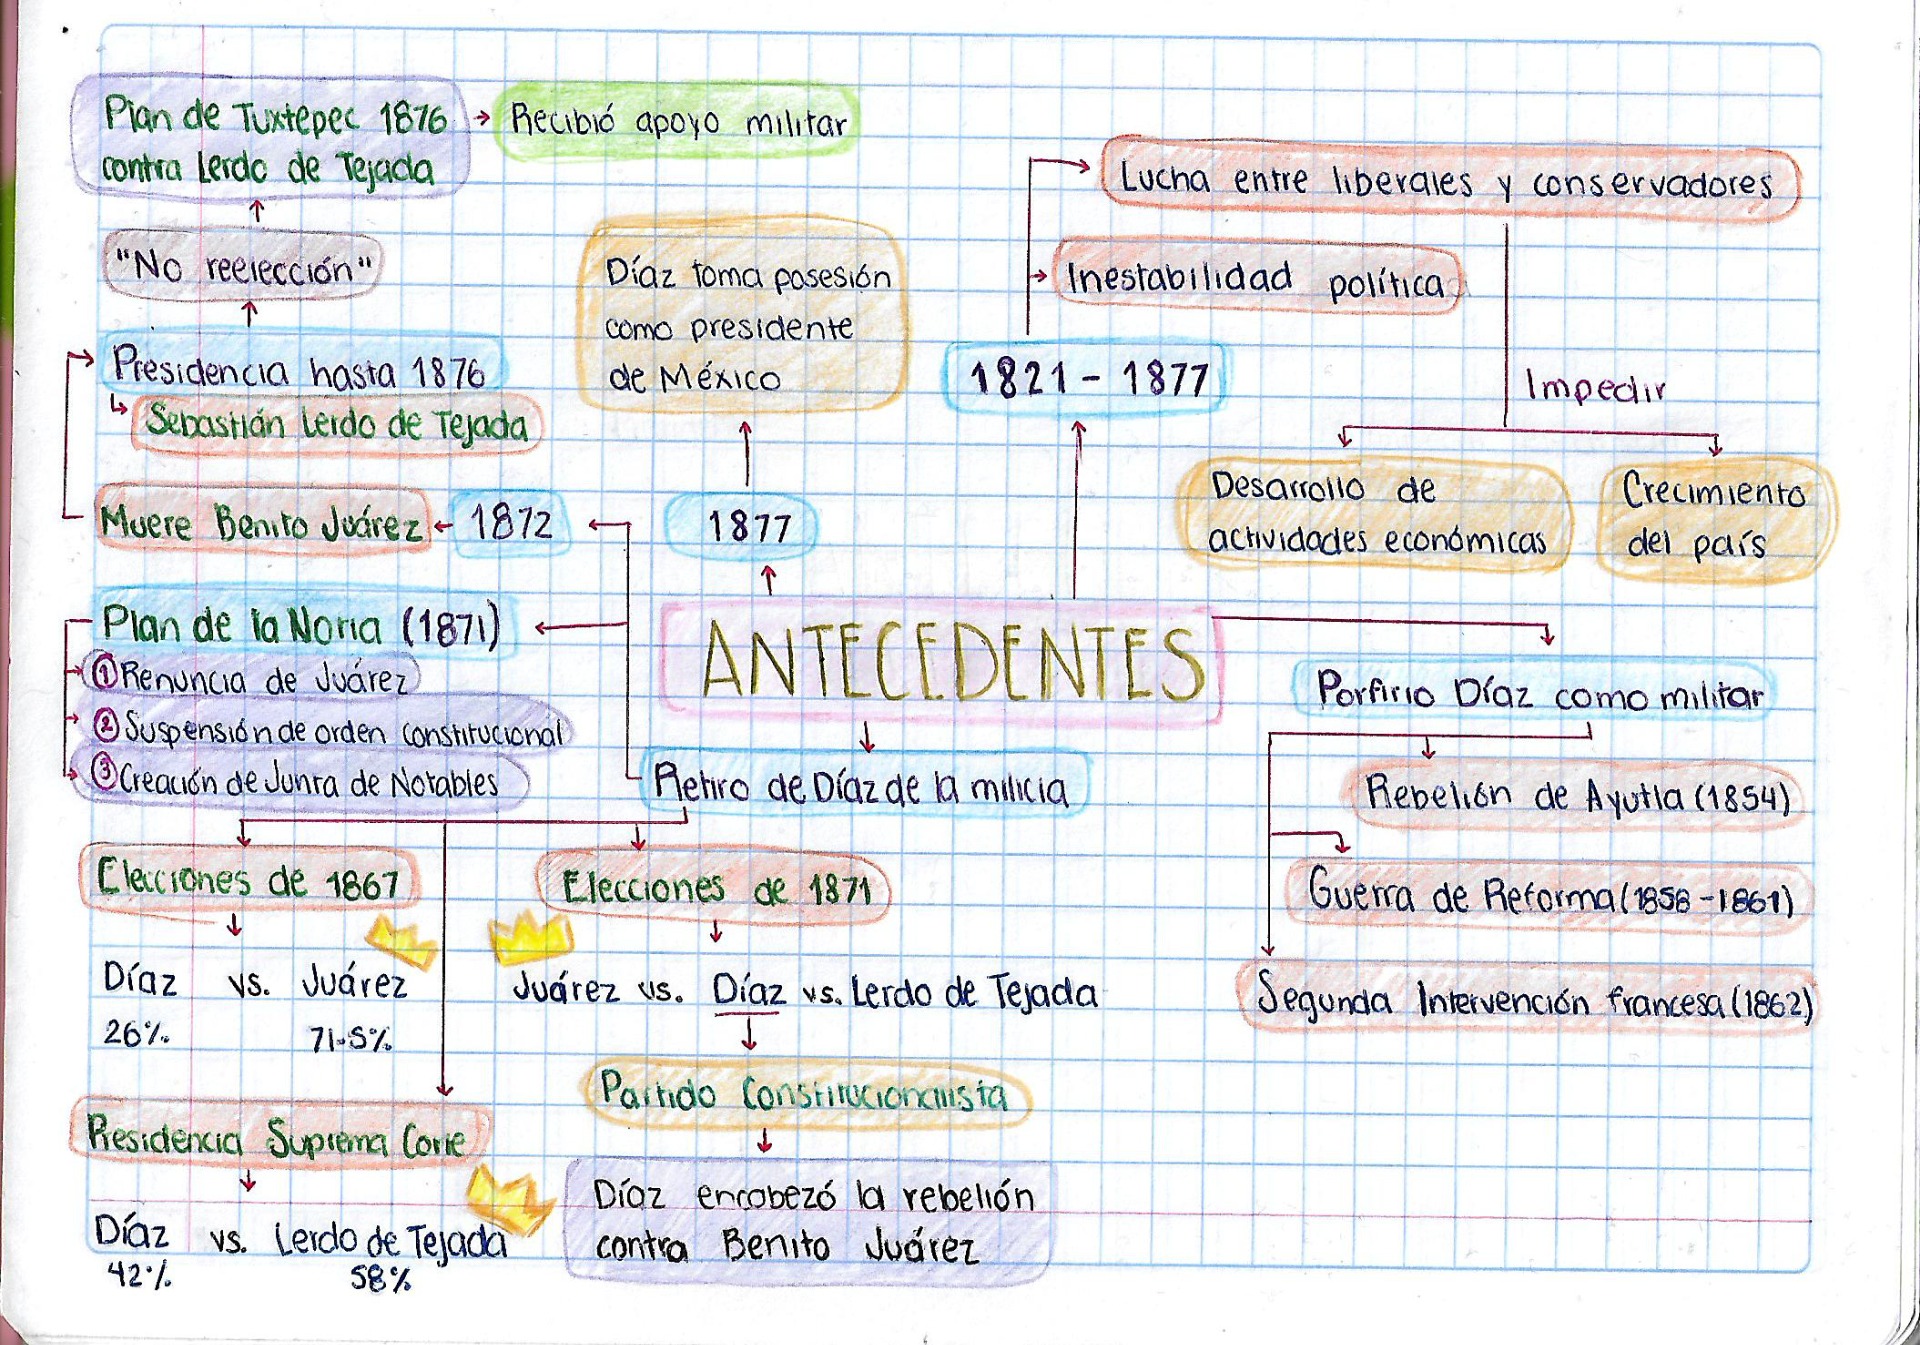 Plan de Tuxtepec 1876
contra Lerdo de Tejada
Recibió apoyo militar
"No reelección"
Presidencia hasta 1876
Sebastián Lerdo de Tejada
Muere Benito Juárez
1872
Plan de la Noria (1871)
① Renuncia de Juárez
② Suspensión de orden constitucional
③ Creación de Junta de Notables
Díaz toma posesión
como presidente
de México
1877
1821 - 1877
Lucha entre liberales y conservadores
Inestabilidad política
Impedir
Desarrollo de
actividades económicas
Crecimiento
del país
ANTECEDENTES
Porfirio Díaz como militar
Rebelión de Ayutla (1854)
Guerra de Reforma (1858 - 1861)
Segunda Intervención francesa (1862)
Retiro de Díaz de la milicia
Elecciones de 1867
Díaz vs. Juárez
26% 71.5%
Elecciones de 1871
Juárez vs. Díaz vs. Lerdo de Tejada
Partido Constitucionalista
Díaz encabezó la rebelión
contra Benito Juárez
Presidencia Suprema Corte
Díaz vs. Lerdo de Tejada
42% 58%